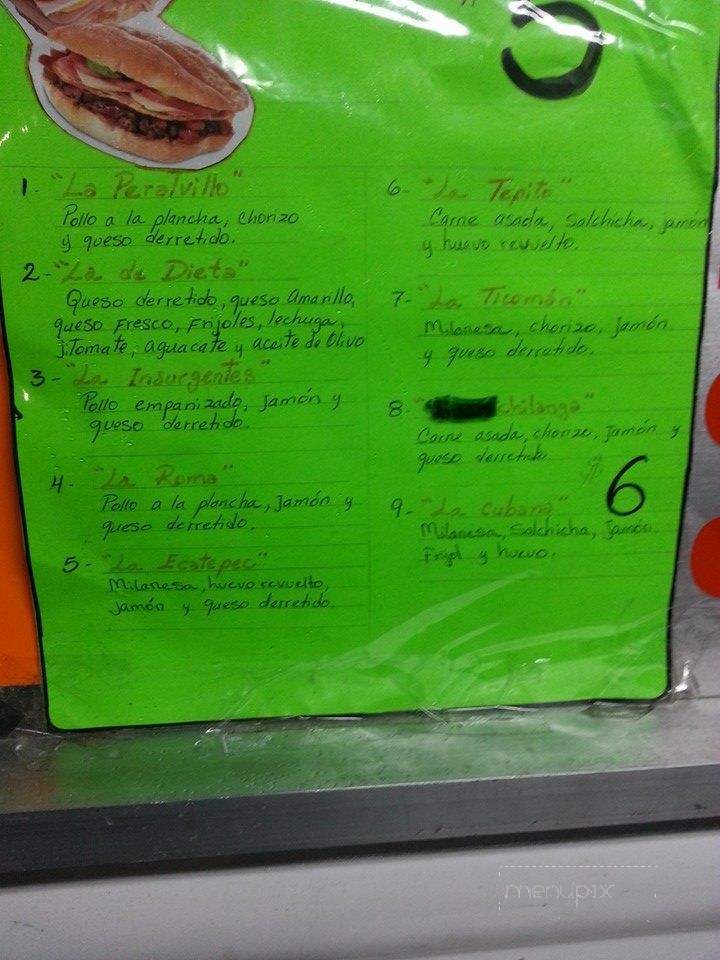 1- "La Peralvillo"
Pollo a la plancha, chorizo
y queso derretido.
2- "La de Dieta"
Queso derretido, queso Amarillo,
queso Fresco, Frijoles, lechuga,
jitomate, aguacate y aceite de Olivo
3- "La Insurgentes"
Pollo empanizado, Jamón y
queso derretido.
4- "La Roma"
Pollo a la plancha, Jamón y
queso derretido.
5- "La Ecatepec"
Milanesa, huevo revuelto,
Jamón y queso derretido.
6- "La Tepito"
Carne asada, salchicha, jamón
y huevo revuelto.
7- "La Ticomán"
Milanesa, chorizo, jamón
y queso derretido.
8- "chilanga"
Carne asada, chorizo, Jamón y
queso derretido.
6
9- "La Cubana"
Milanesa, Salchicha, Jamón.
Frijol y huevo.
menupix